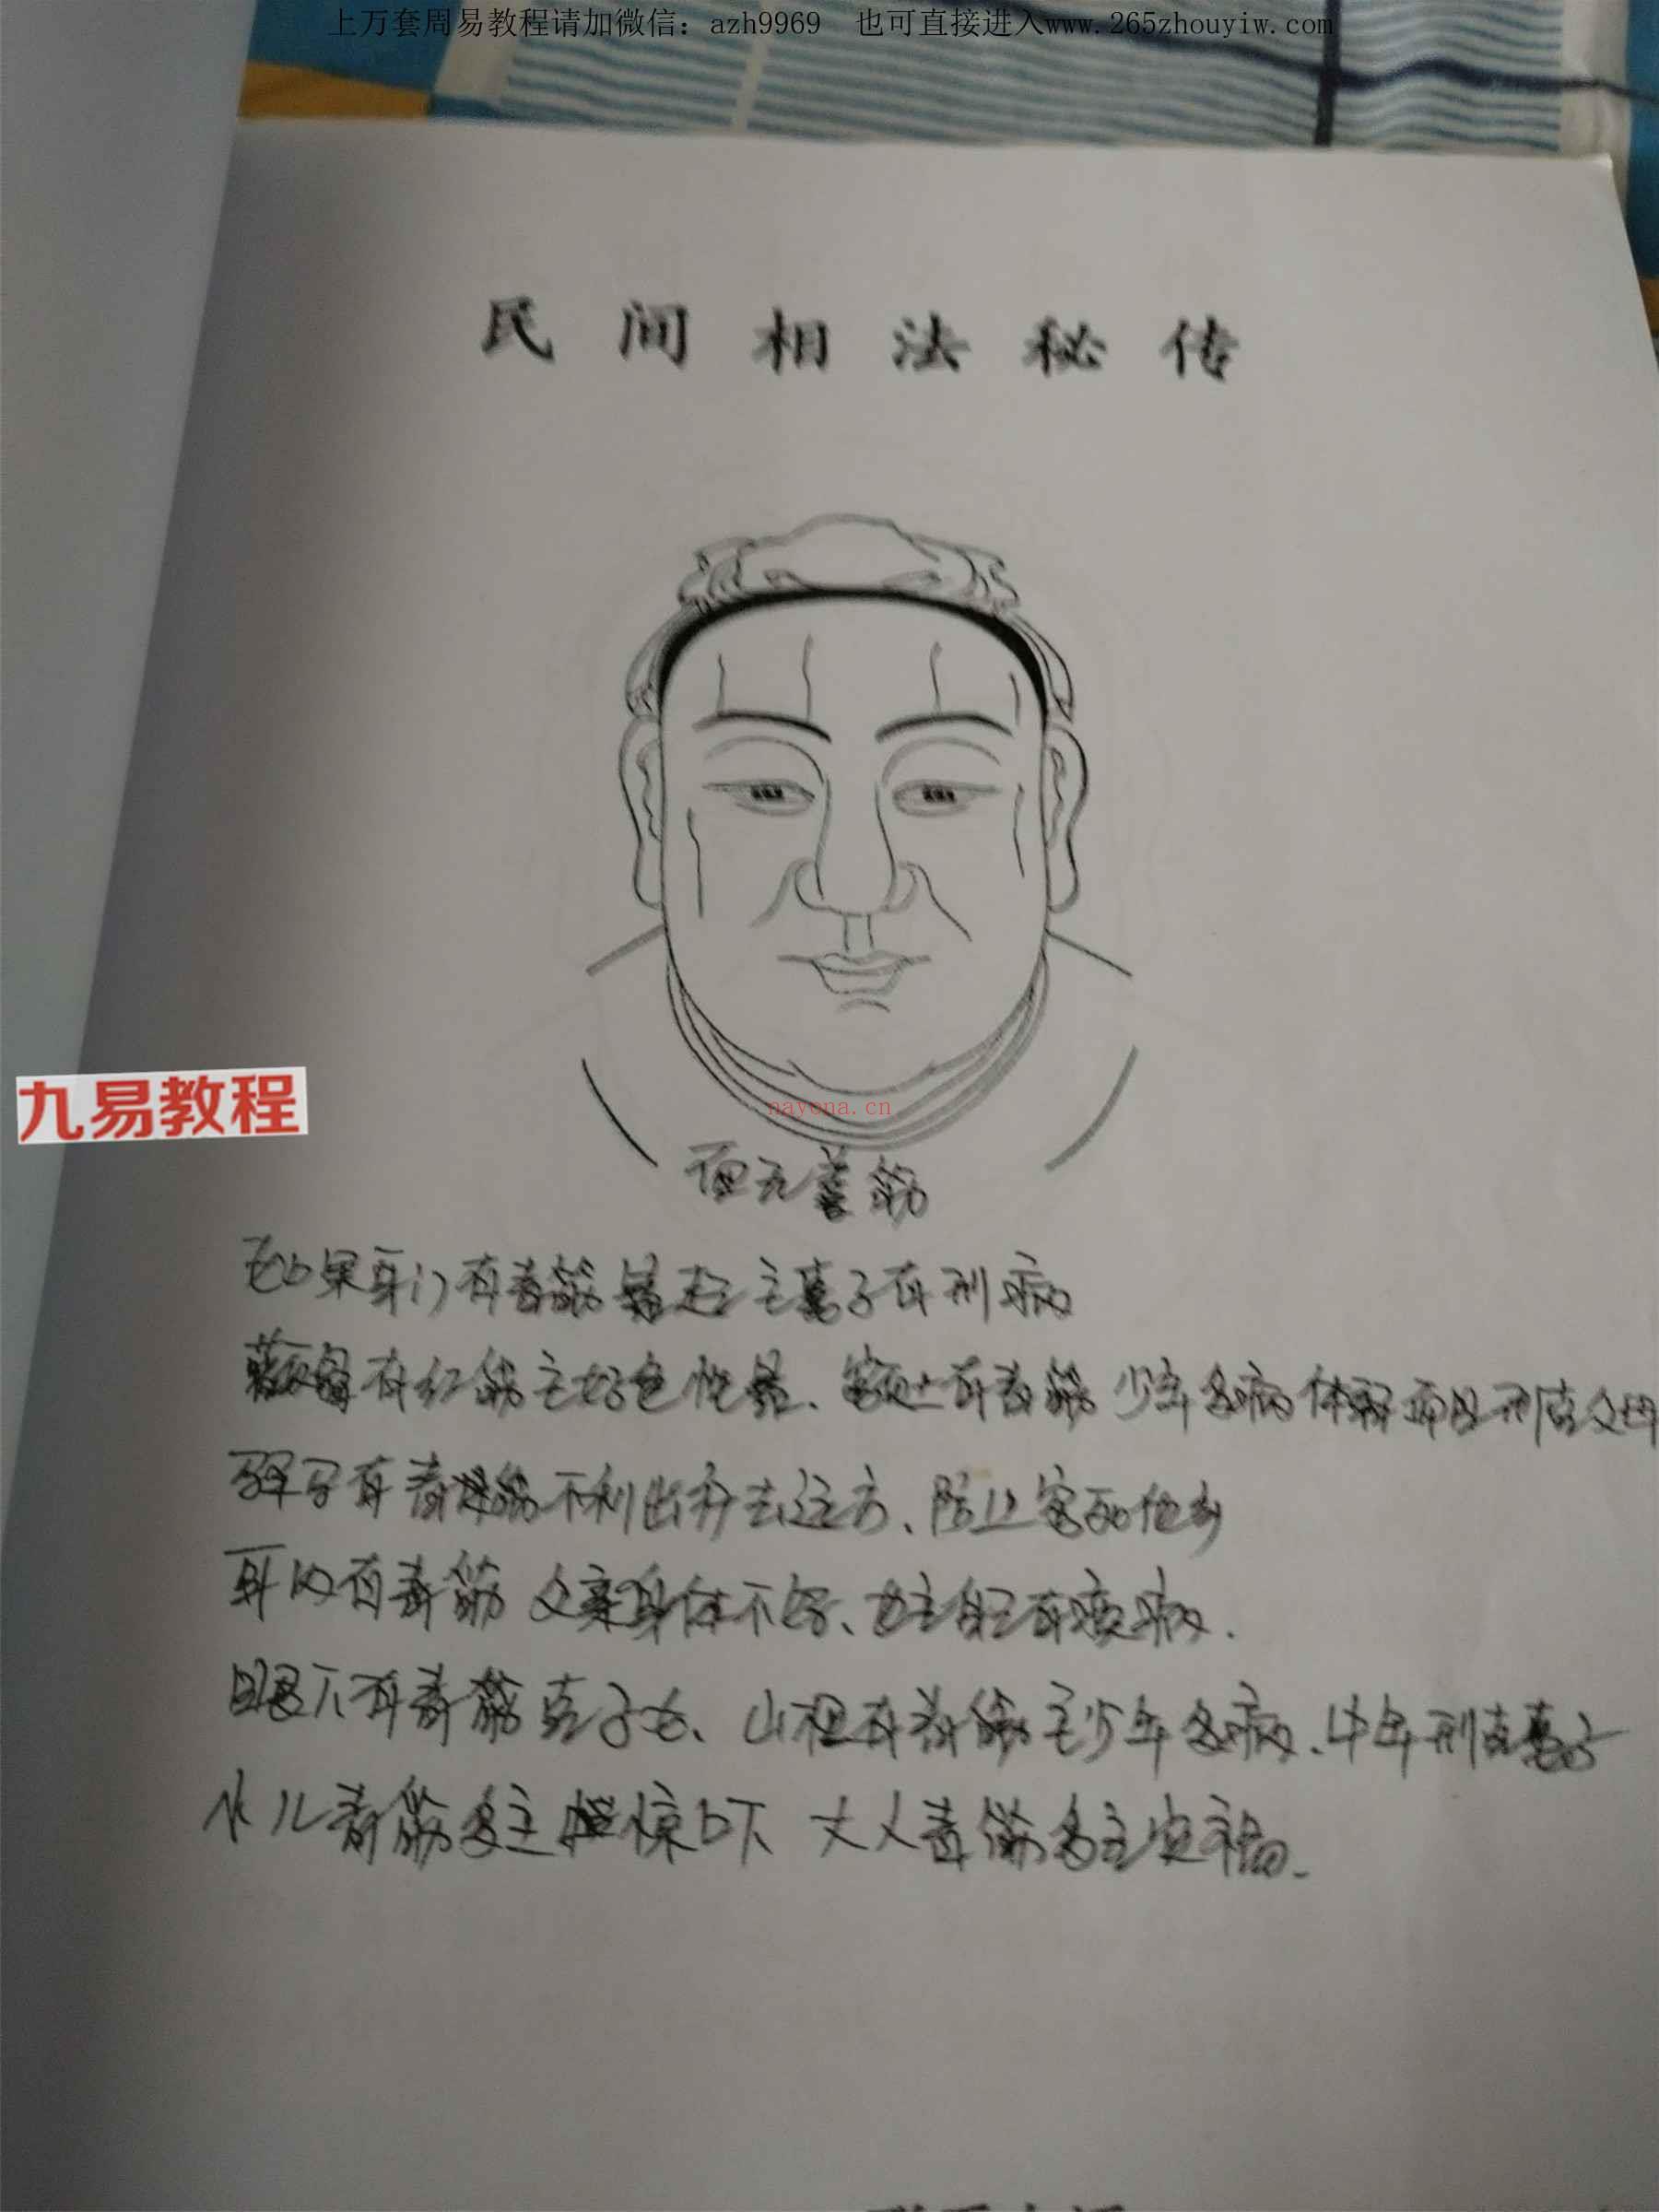 上万套周易教程请加微信：azh9969 也可直接进入www.265zhouyiw.com
民间相法秘传
九易教程
nayona.cn
面无善筋
如果耳门有青筋暴起主妻子有刑病
有红筋主好色性暴、额上有青筋 少年多病体弱而且刑克父母
驿马有青筋不利出外去远方、防止客死他乡
耳内有青筋 父亲身体不好、也主自己有疾病.
眼下有青筋克子女、山根有青筋主少年多病、中年刑克妻子
小儿青筋多主惊吓 大人青筋多主灾祸.